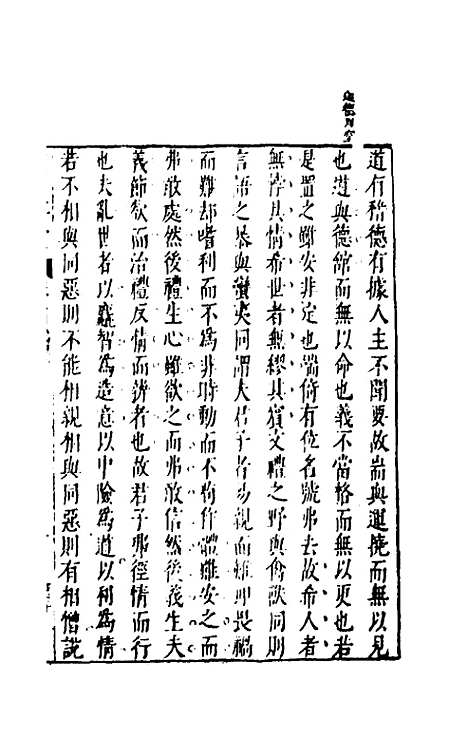 道有稽德有據人主不聞要故耑與運撓而無以見
也道與德館而無以命也義不當格而無以更也若
是置之雖安非定也端倚有位名號弗去故希人者
無悖其情希世者無繆其賓文禮之野與禽獸同則
言語之暴與蠻夷同謂夫君子者易親而難狎畏禍
而難却嗜利而不為非時動而不苟作體雖安之而
弗敢處然後禮生心雖欲之而弗敢信然後義生夫
義節欲而治禮反情而辨者也故君子弗徑情而行
也夫亂世者以麤智為造意以中險為道以利為情
若不相與同惡則不能相親相與同惡則有相憎說